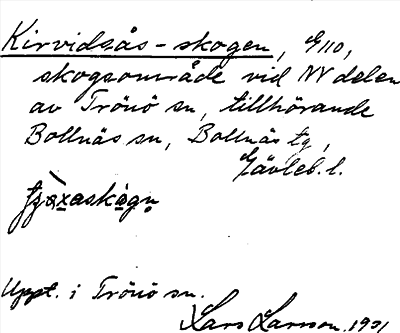 Kirvidsås-skogen, G110,
skogsområde vid NV delen
av Trönö sn, tillhörande
Bollnäs sn, Bollnäs tg,
Gävleb. l.
Uppt. i Trönö sn.
Lars Larsson, 1931